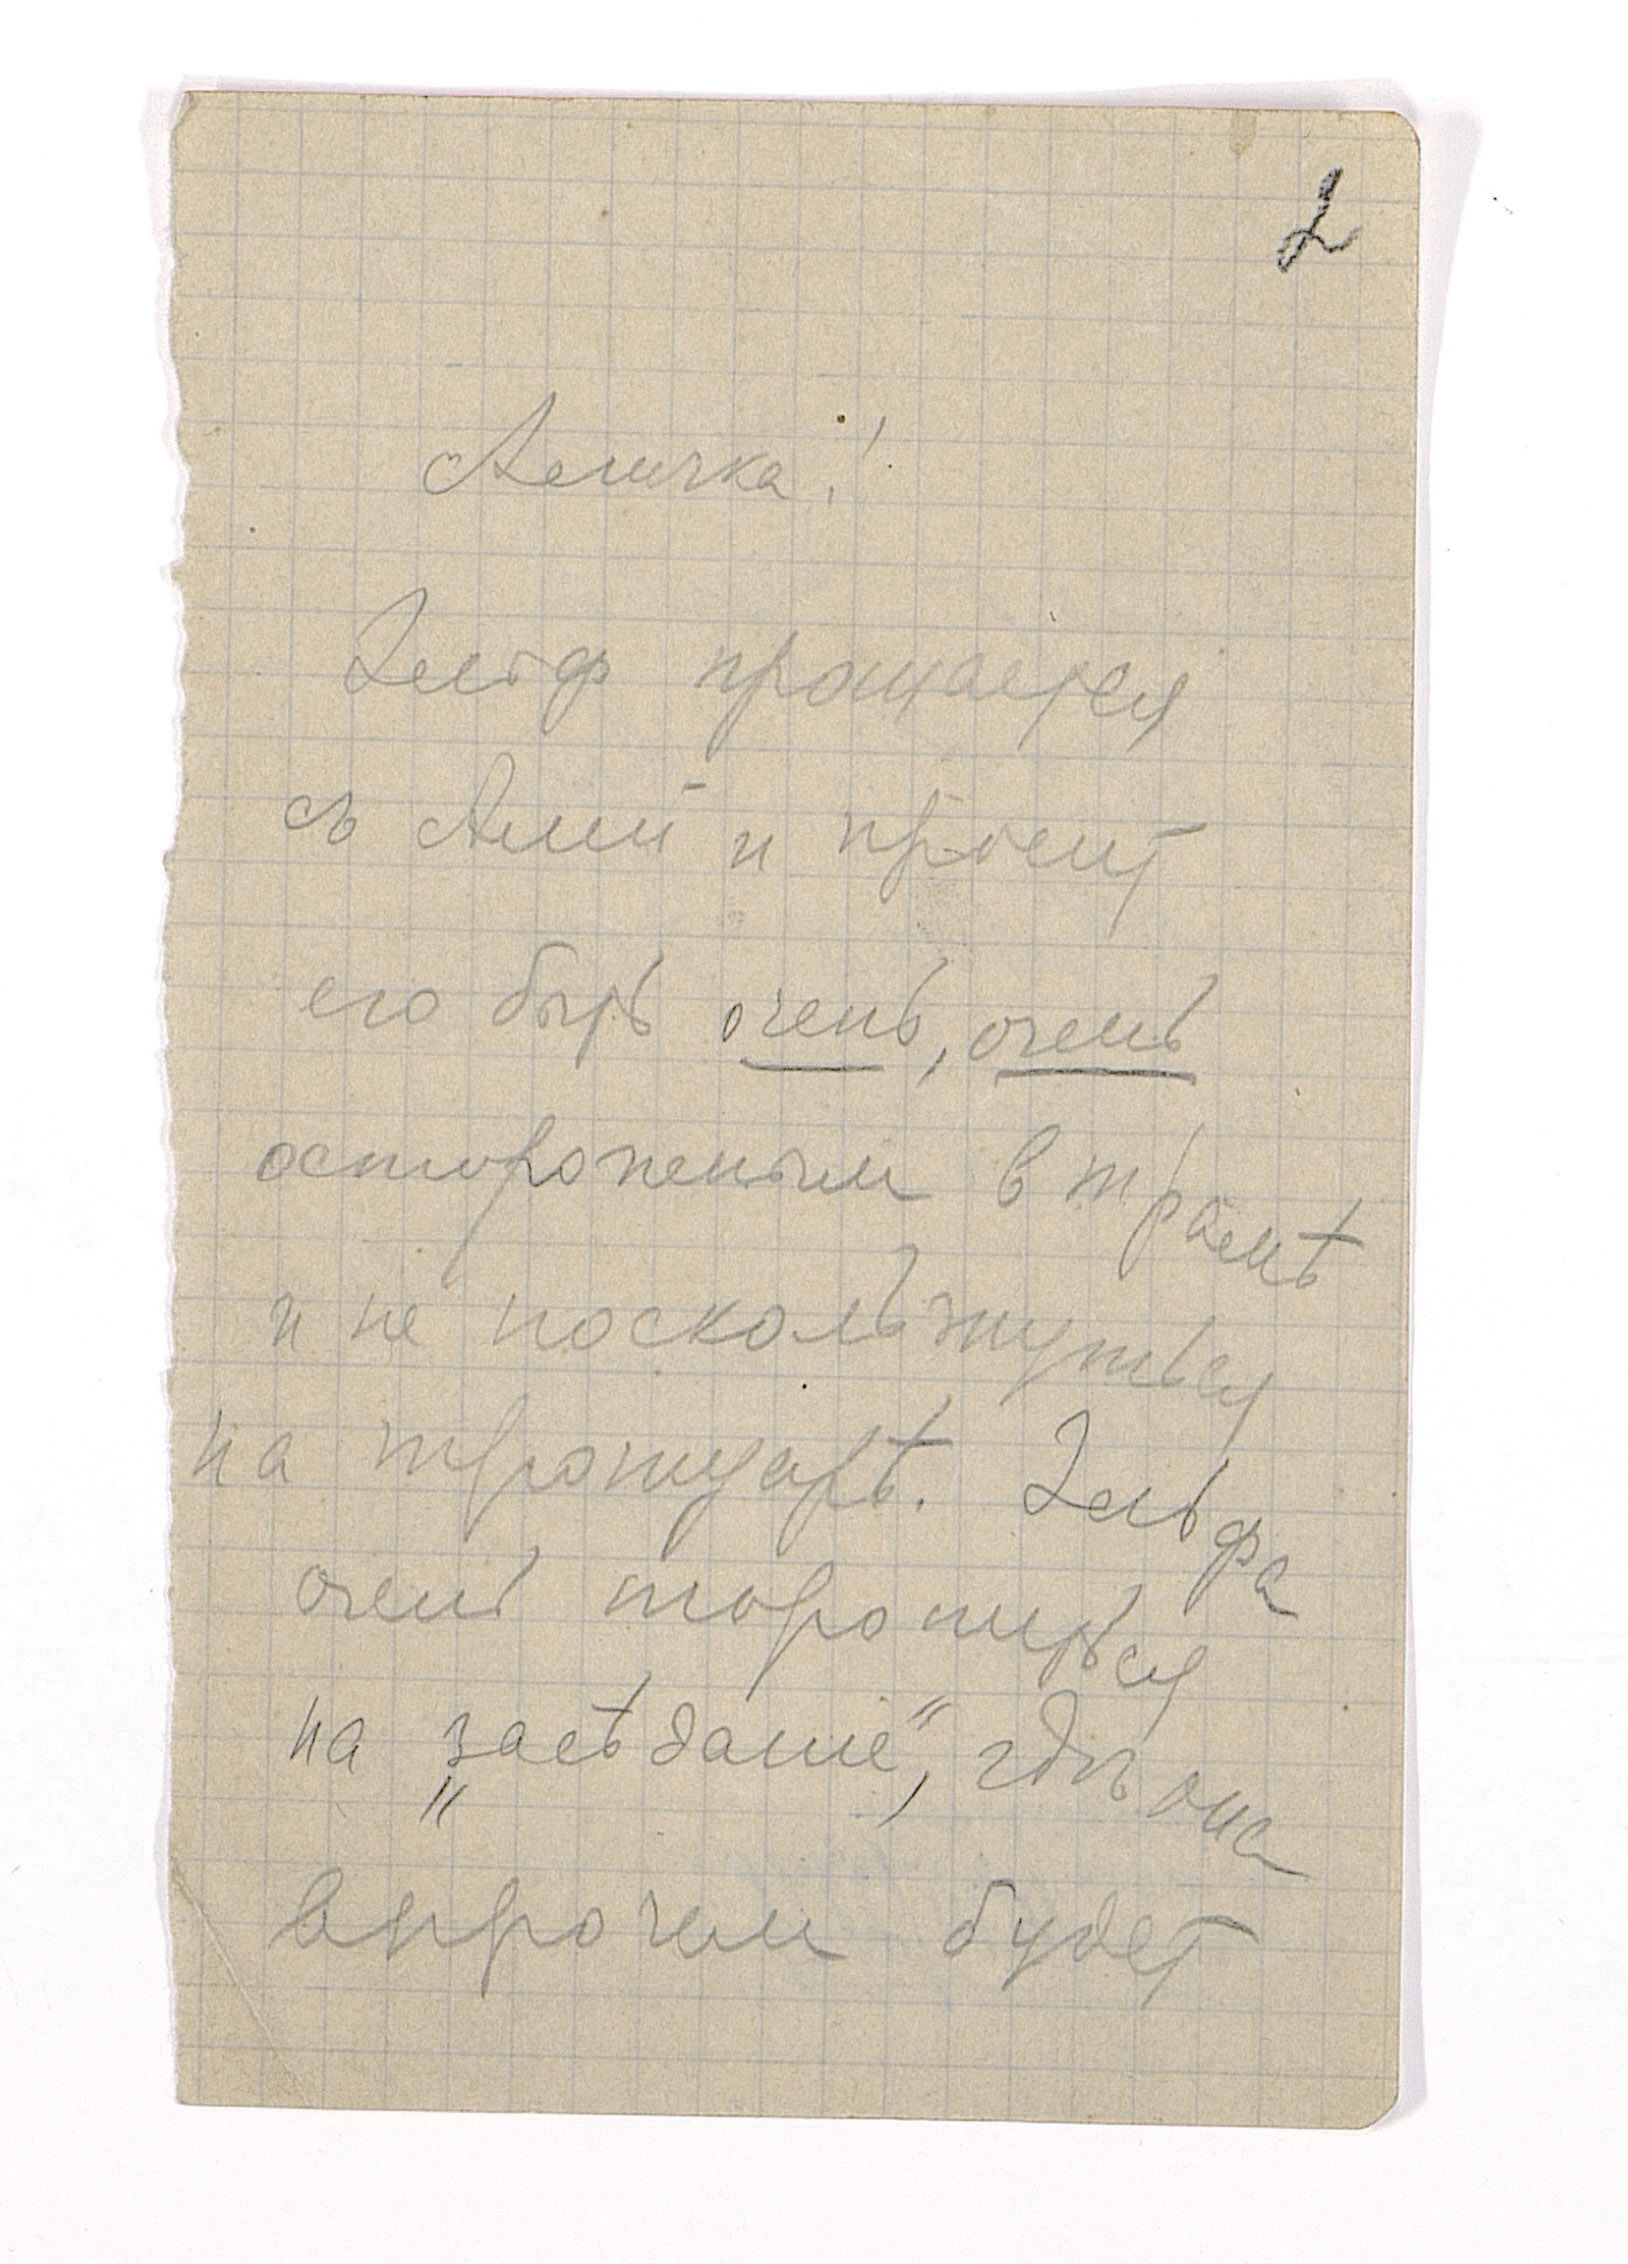 2
Аличка!
Зельф прощается
съ Алей и просит
его быть очень, очень
осторожным в трамѣ
и не поскользнуться
на тротуарѣ. Зельфа
очень торопится
на „засѣданiе“, гдѣ она
впрочем будет